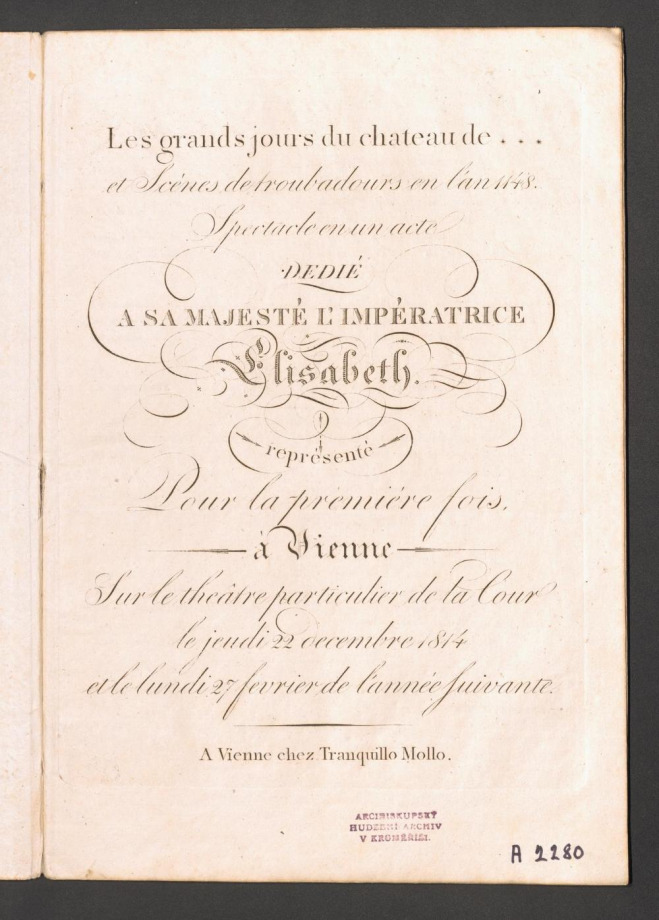 Les grands jours du chateau de . . .
et Scénes de troubadours en l'an 1148.
Spectacle en un acte
DEDIÉ
A SA MAJESTÉ L'IMPÉRATRICE
Elisabeth.
représenté
Pour la prémiére fois,
à Vienne
Sur le théâtre particulier de la Cour
le jeudi 22 decembre 1814
et le lundi 27 fevrier de l'année suivante.
A Vienne chez Tranquillo Mollo.
ARCIBISKUPSKÝ
HUDEBNÍ ARCHIV
V KROMĚŘÍŽI.
A 2280